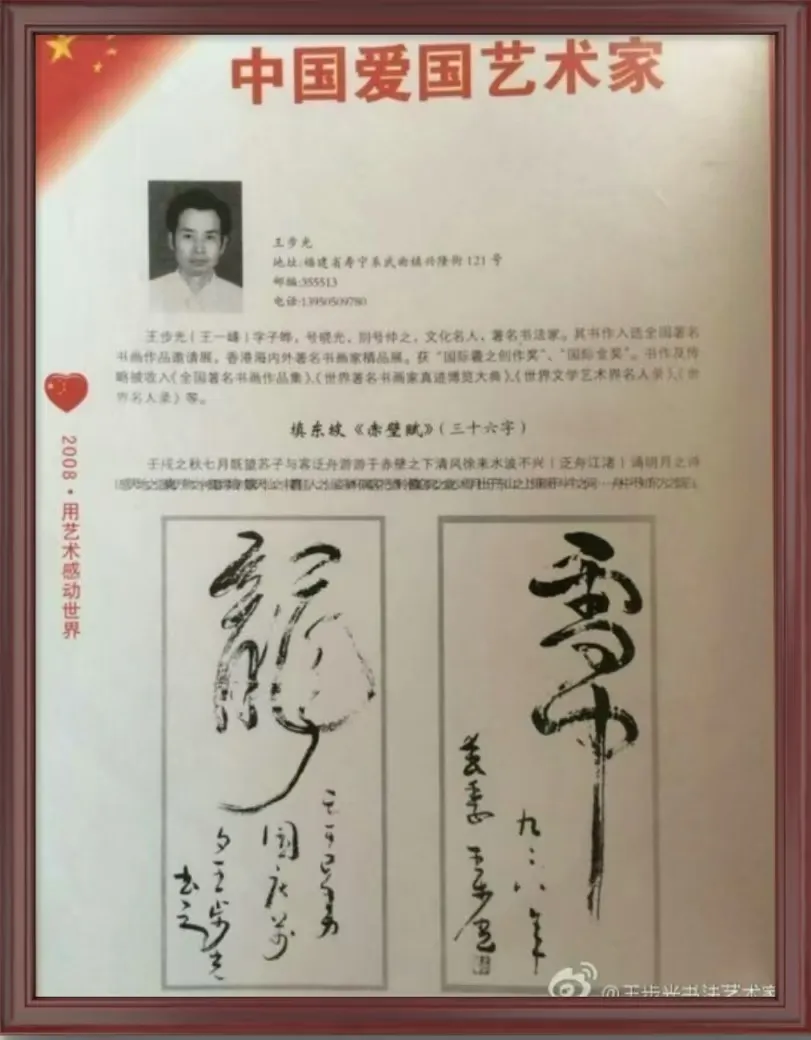 中国爱国艺术家
王步光
地址:福建省寿宁县武曲镇兴隆街121号
邮编:355513
电话:13950509780
王步光(王一峰)字子晔,号晓光,别号仲之,文化名人、著名书法家。其书作入选全国著名
书画作品邀请展,香港海内外著名书画家精品展。获"国际羲之创作奖"、"国际金奖"。书作及传
略被收入《全国著名书画作品集》、《世界著名书画家真迹博览大典》、《世界文学艺术界名人录》、《世
界名人录》等。
填东坡《赤壁赋》(三十六字)
壬戌之秋七月既望苏子与客泛舟游游于赤壁之下清风徐来水波不兴(泛舟江渚)诵明月之诗
2008·用艺术感动世界
龍
国庆前
夕王步光
书之
雪中
九二八年
@王步光书法艺术家